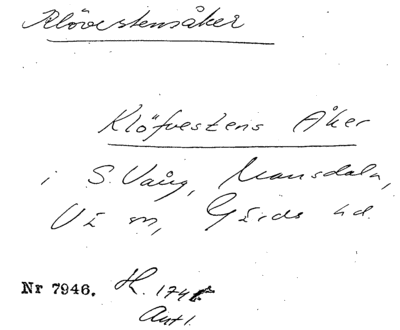 Klövestensåker
Klöfvestens Åker
i S. Vång, Mansdala,
Vä sn, Gärds hd.
Nr 7946. H. 174
Ant 1.